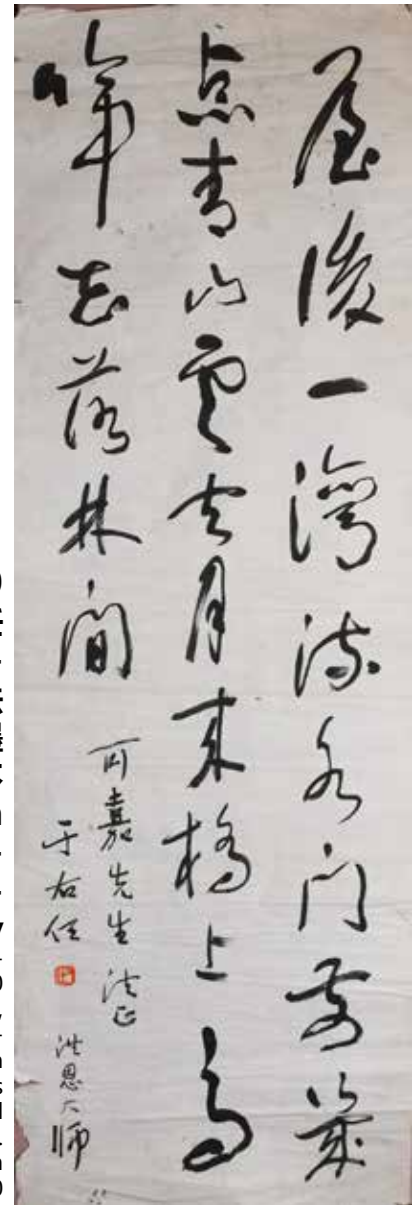 屋後一灣流水門前幾
点青山雲去月来橋上鳥
啼花落林間
嘉先生法正
于右任
洪恩大師